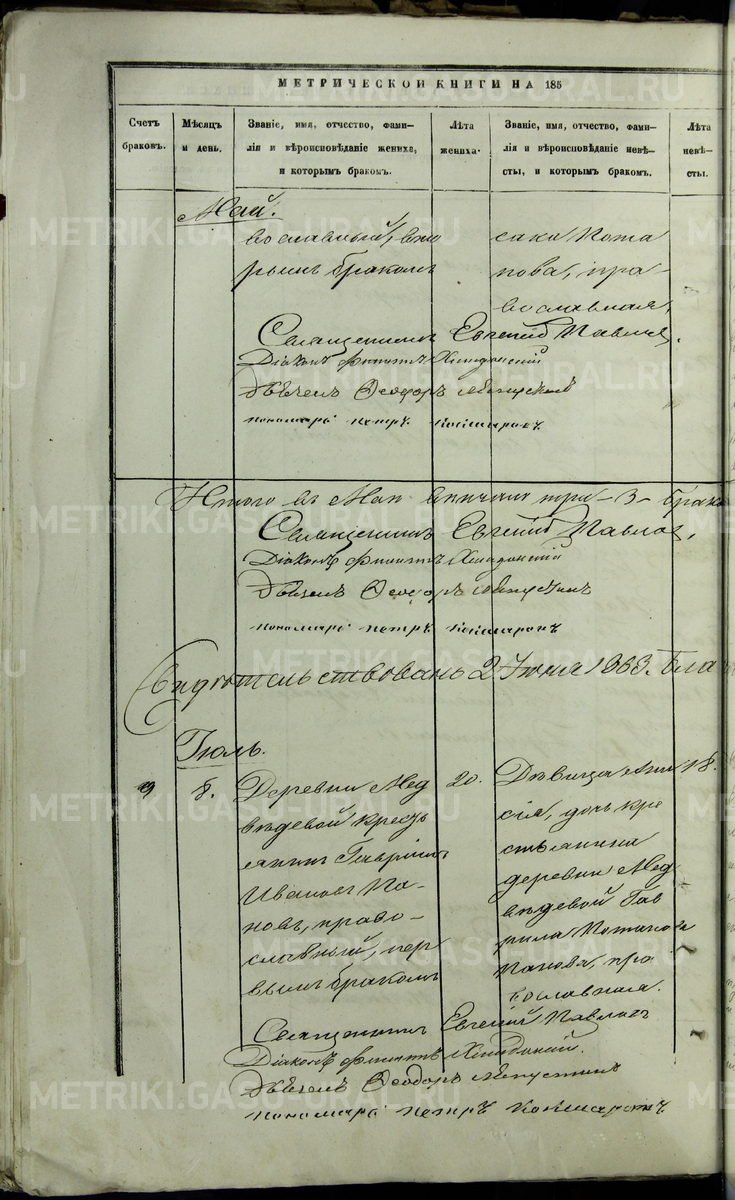 МЕТРИЧЕСКОЙ КНИГИ НА 185
Счетъ браковъ.
Мѣсяцъ и день.
Званіе, имя, отчество, фами-
лія и вѣроисповѣданіе жениха,
и которымъ бракомъ.
Лѣта жениха.
Званіе, имя, отчество, фами-
лія и вѣроисповѣданіе невѣ-
сты, и которымъ бракомъ.
Лѣта невѣ-
сты.
Май.
вославный, вто
рымъ бракомъ
сака Пота
пова, пра-
вославная,
Священникъ Евгеній Павловъ.
Діаконъ Филиппъ
Дьячекъ Ѳеодоръ
пономарь петръ кокшаровъ
Итого въ Маѣ вѣнчано три - 3 - брака
Священникъ Евгеній Павловъ,
Діаконъ Филиппъ
Дьячекъ Ѳеодоръ
пономарь петръ кокшаровъ
Свидѣтельствовано 2 Іюня 1863. Бла
Іюль.
9
8.
Деревни Мед
вѣдевой кресть
янинъ Гавріилъ
Ивановъ Па-
новъ, право-
славный, пер
вымъ бракомъ
20.
Дѣвица Ани
сія, дочь кре
стьянина
деревни Мед
вѣдевой Гав
рила Потапова
Панова, пра
вославная.
18.
Священникъ Евгеній Павловъ
Діаконъ Филиппъ
Дьячекъ Ѳеодоръ
пономарь петръ кокшаровъ
METRIKI.GASO-URAL.RU